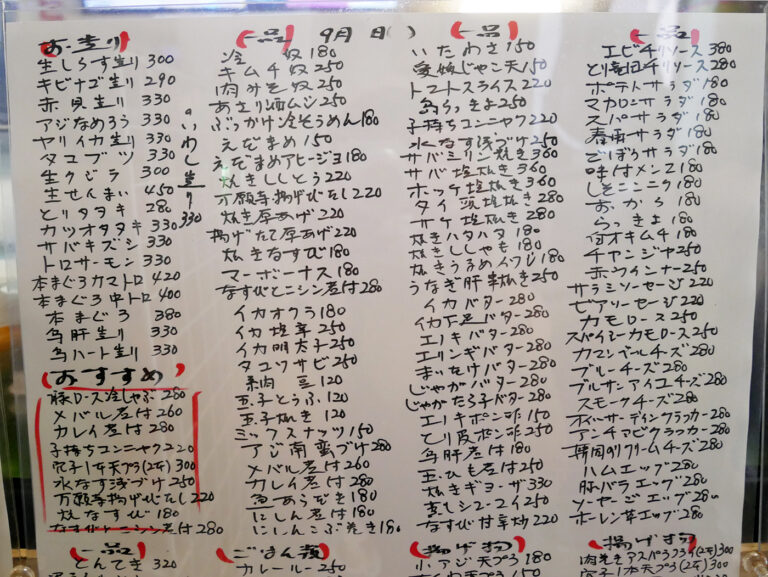 お造り
生しらす造り 300
キビナゴ造り 290
赤貝造り 330
アジなめろう 330
ヤリイカ造り 330
タコブツ 330
生クジラ 300
生せんまい 450
とりタタキ 280
カツオタタキ 330
サバキズシ 330
トロサーモン 330
本まぐろカマトロ 420
本まぐろ中トロ 400
本まぐろ 380
鳥肝造り 330
鳥ハート造り 330
いわし造り 330
おすすめ
豚ロース冷しゃぶ 280
メバル煮付 260
カレイ煮付 280
子持ちコンニャク 220
穴子1本天プラ(2本) 300
水なす浅づけ 250
万願寺揚げびたし 220
焼なすび 180
なすびとニシン煮付 280
一品
とんてき 320
一品 9月 日( )
冷奴 180
キムチ奴 250
肉みそ奴 250
あさり酒ムシ 250
ぶっかけ冷そうめん 180
えだまめ 150
えだまめアヒージョ 180
焼きししとう 220
万願寺揚げびたし 220
焼き厚あげ 220
揚げたて厚あげ 220
焼きなすび 180
マーボーナス 180
なすびとニシン煮付 280
イカオクラ 180
イカ塩辛 250
イカ明太子 250
タコワサビ 250
納豆 120
玉子とうふ 120
玉子焼き 120
ミックスナッツ 150
アジ南蛮づけ 280
メバル煮付 260
カレイ煮付 280
魚あらだき 180
にしん煮付 180
にしんこぶ巻き 180
ごはん類
カレールー 250
一品
いたわさ 150
愛媛じゃこ天 150
トマトスライス 220
島らっきょ 250
子持ちコンニャク 220
水なす浅づけ 250
サバミリン焼き 360
サバ塩焼き 360
ホッケ塩焼き 360
タイ頭塩焼き 280
サケ塩焼き 280
焼きハタハタ 180
焼きししゃも 180
焼きうるめイワシ 180
うなぎ肝串焼き 250
イカバター 280
イカ下足バター 280
エノキバター 280
エリンギバター 280
まいたけバター 280
じゃがバター 280
じゃがたら子バター 280
エノキポン酢 150
とり皮ポン酢 250
鳥肝煮付 180
玉ひも煮付 250
焼きギョーザ 330
蒸しシューマイ 250
なすび甘辛炒 220
揚げ物
小アジ天プラ 180
一品
エビチリソース 380
とり唐団チリソース 280
ポテトサラダ 180
マカロニサラダ 180
スパサラダ 180
春雨サラダ 180
ごぼうサラダ 180
味付メンマ 180
しそニンニク 180
おから 180
らっきょ 180
何才キムチ 180
チャンジャ 250
赤ウインナー 250
サラミソーセージ 220
ビアソーセージ 220
カモロース 250
スパイシーカモロース 250
カマンベールチーズ 280
ブルーチーズ 280
ブルサンアイユチーズ 280
スモークチーズ 280
オイルサーディンクラッカー 280
アンチョビクラッカー 280
静岡のりクリームチーズ 280
ハムエッグ 280
豚バラエッグ 280
ソーセージエッグ 280
ホーレン草エッグ 280
揚げ物
肉巻きアスパラフライ(2本) 300
穴子1本天プラ(2本) 300